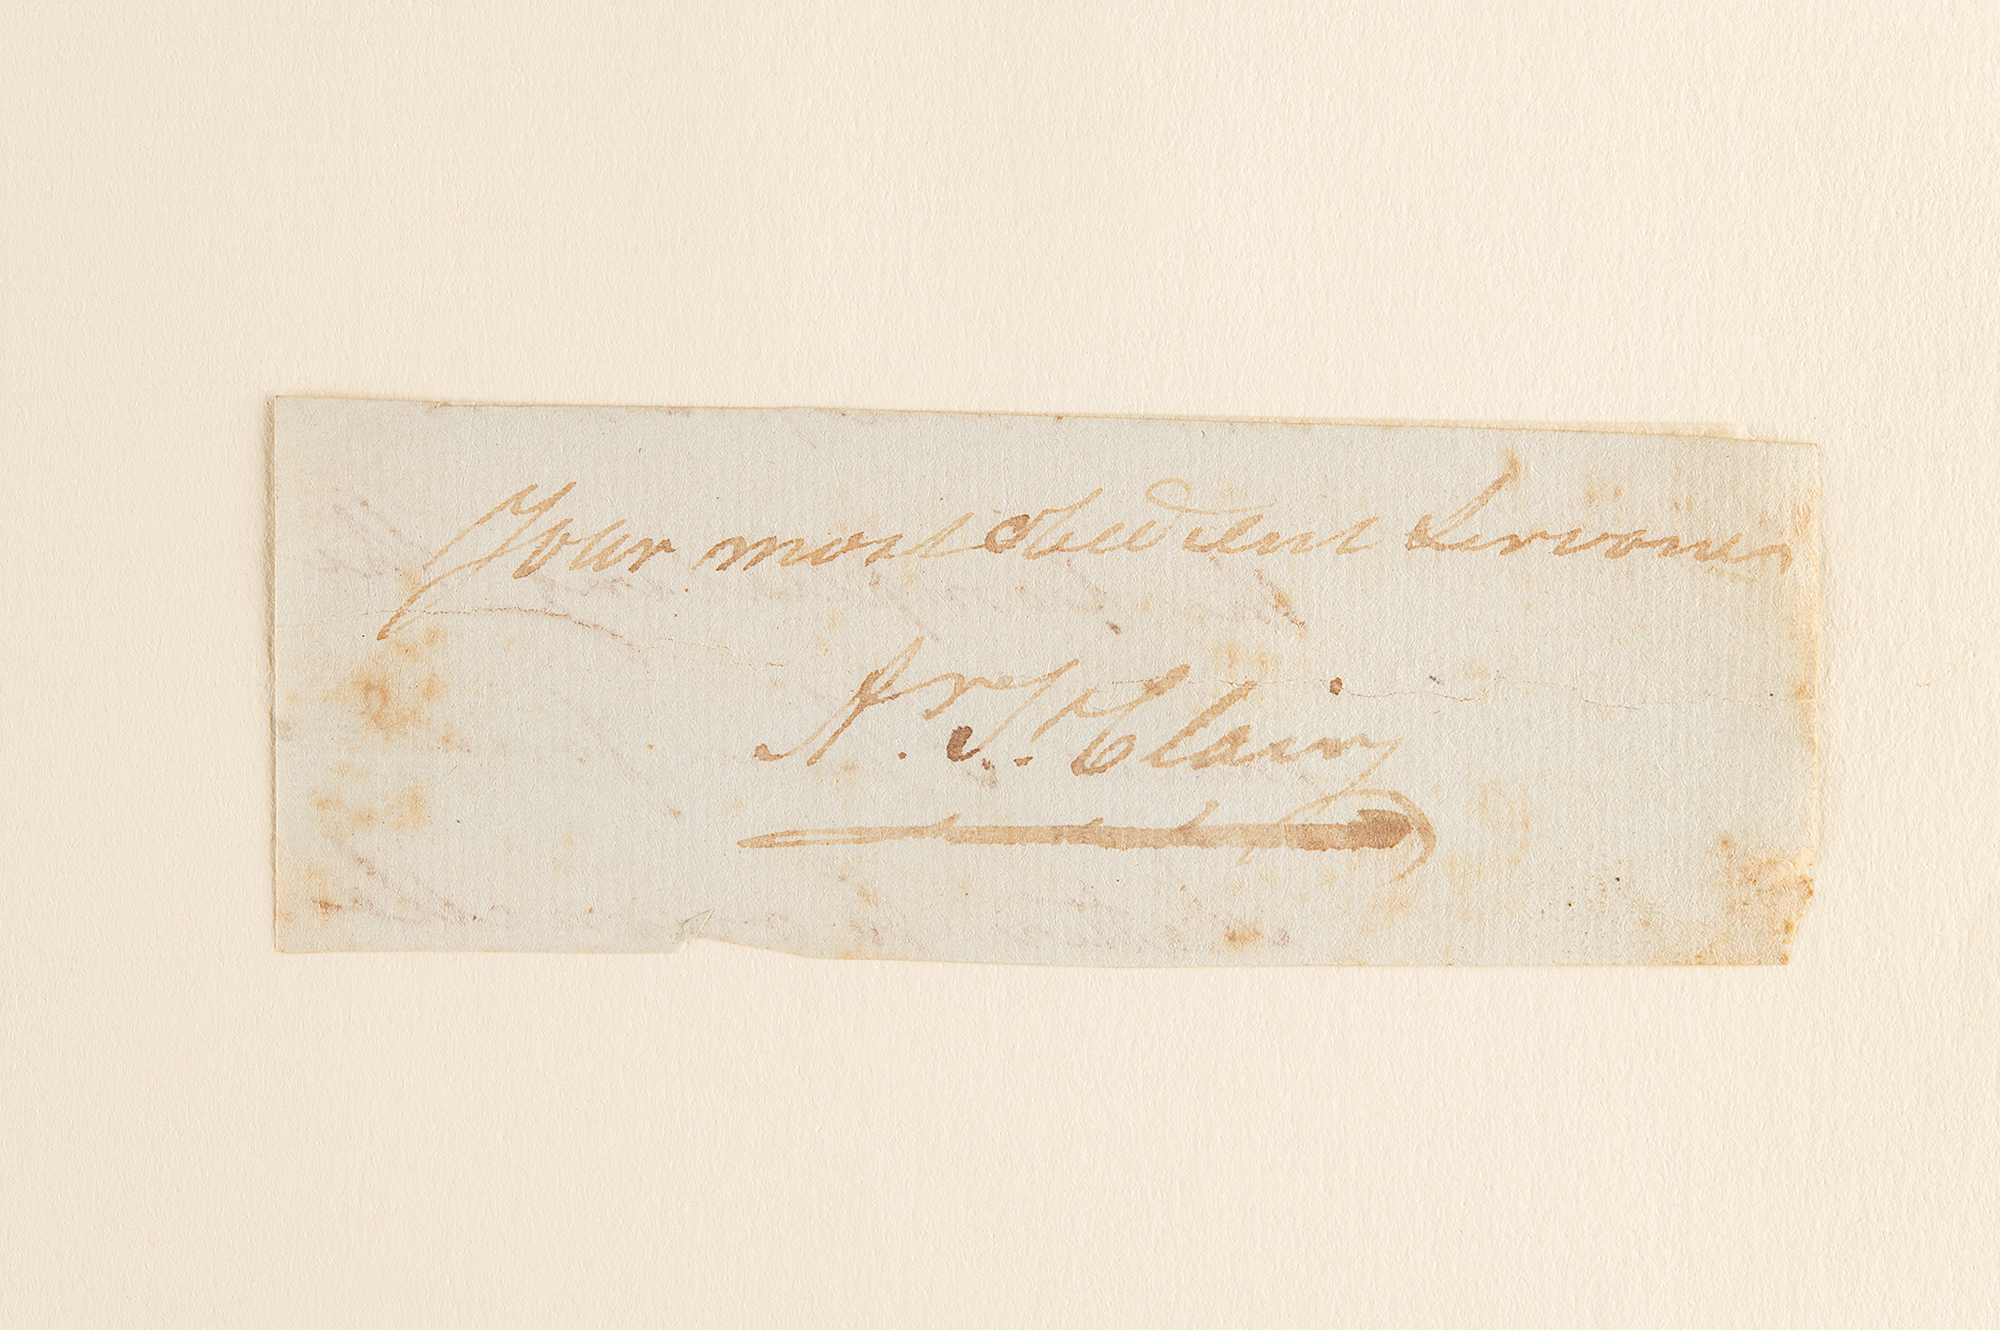 Your most obedient Servant
Ar. St. Clair